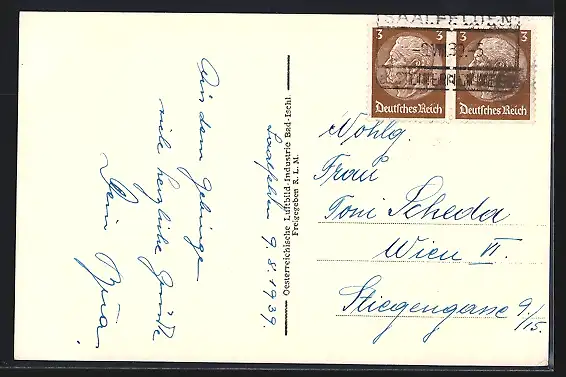 Aus dem Gebirge
viele herzliche Grüße
Dein
Saalfelden 9.8.1939.
Oesterreichische Luftbild-Industrie Bad-Ischl.
Freigegeben R. L. M.
SAALFELDEN
3 3
3 3
Deutsches Reich
Deutsches Reich
Wohlg.
Frau
Toni Scheda
Wien VI.
Stiegengasse 9/15.